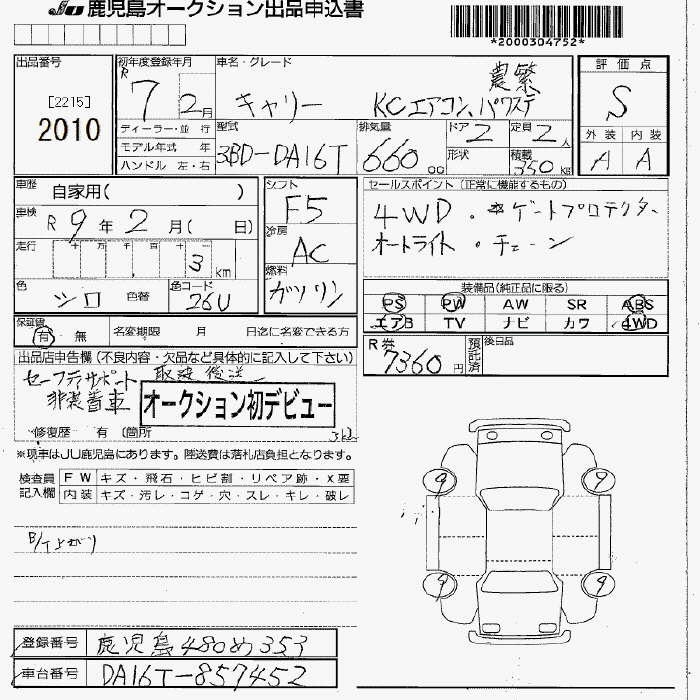 JU 鹿児島オークション出品申込書
*2000304752*
出品番号
[2215]
2010
初年度登録年月
R 7 2月
ディーラー・並 行
モデル年式 年
ハンドル 左・右
車名・グレード
農繁
キャリー KCエアコン、パワステ
型式
3BD-DA16T
排気量
660 cc
ドア 2
形状
定員 2人
積載 350 kg
評価点
S
外装 内装
A A
車歴 自家用( )
車検 R 9年 2月( 日)
走行 十 万 千 百 十 3 km
色 シロ 色替
色コード 26U
シフト
F5
冷房
AC
燃料
ガソリン
セールスポイント(正常に機能するもの)
4WD ・ *ゲートプロテクター
オートライト ・ チェーン
装備品(純正品に限る)
PS PW AW SR ABS
エアB TV ナビ カワ 4WD
保証書
有 無 名変期限 月 日迄に名変できる方
R券 7360円
預託済
後日品
出品店申告欄(不良内容・欠品など具体的に記入して下さい)
セーフティサポート 取説後送
非装着車
オークション初デビュー
修復歴 有 〔箇所
※現車はJU鹿児島にあります。陸送費は落札店負担となります。
検査員記入欄
FW キズ・飛石・ヒビ割・リペア跡・X要
内装 キズ・汚レ・コゲ・穴・スレ・キレ・破レ
B/T上がり
9 9
9 9
登録番号 鹿児島480め353
車台番号 DA16T-857452